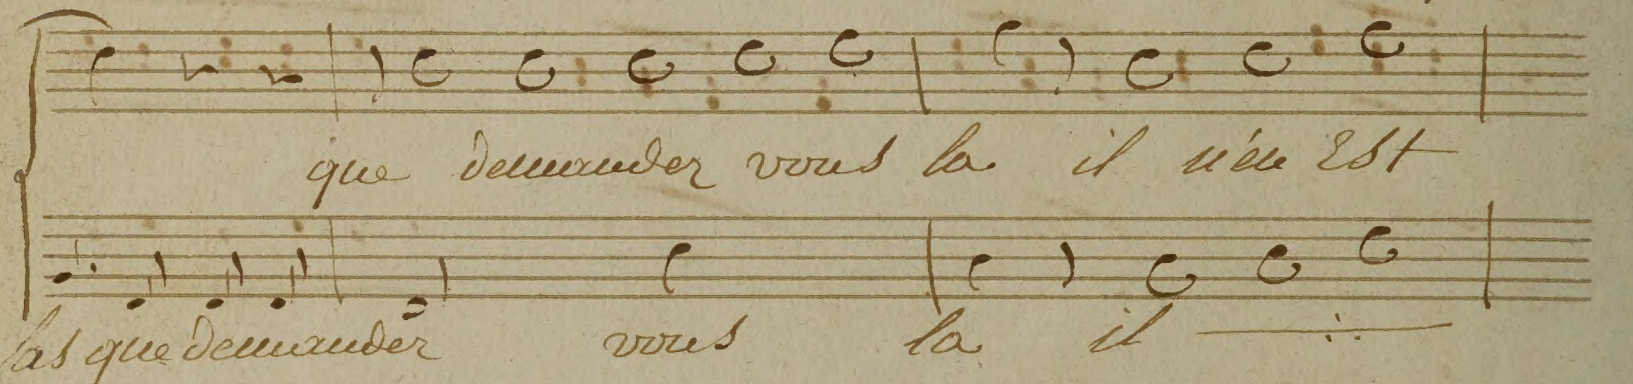 que demander vous la il n'en Est
las que demander vous la il